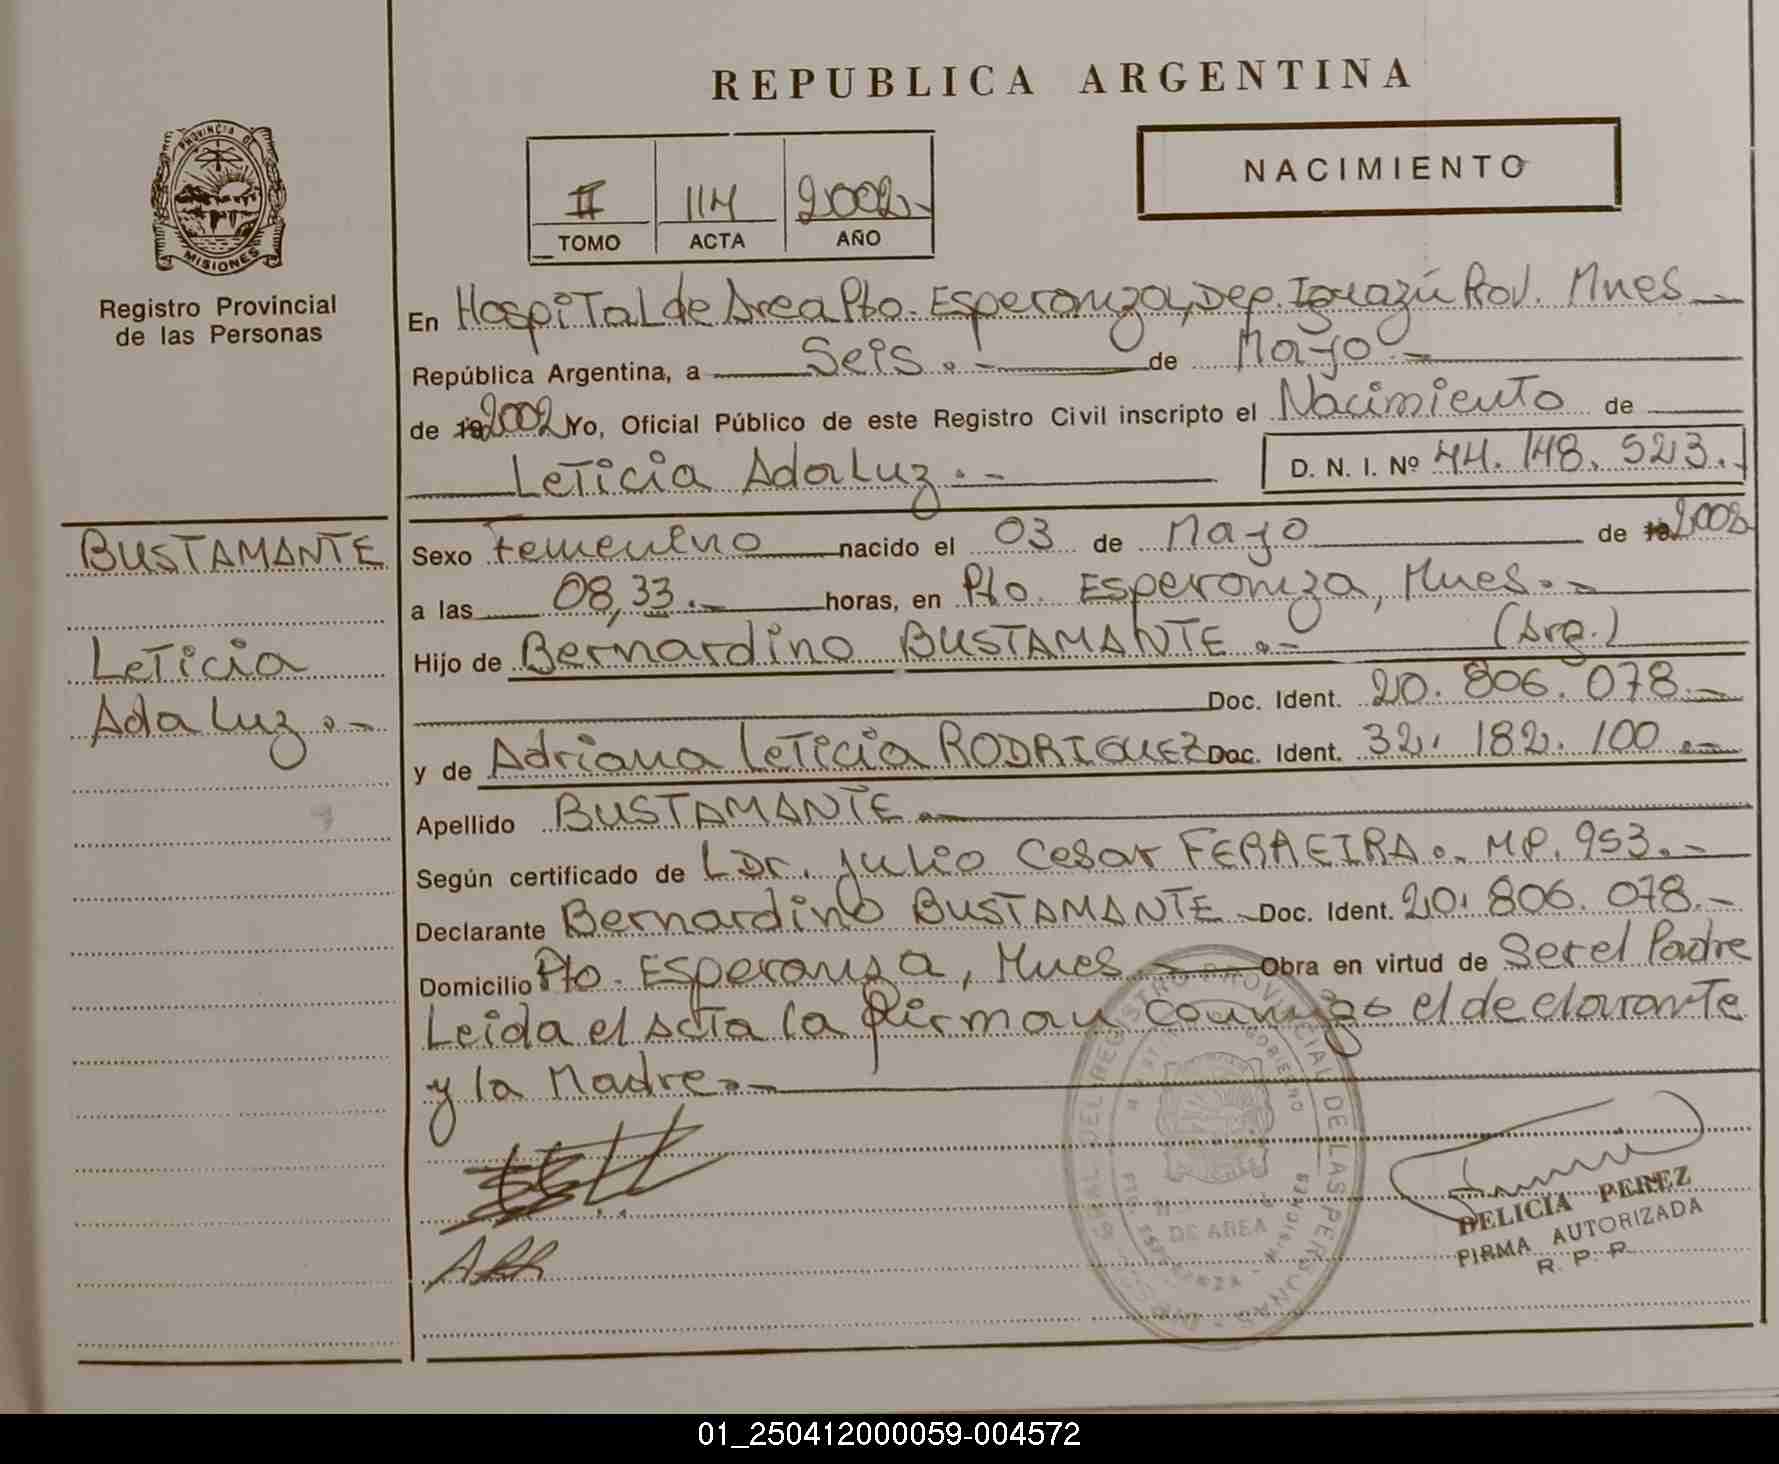 REPUBLICA ARGENTINA
PROVINCIA DE
MISIONES
Registro Provincial
de las Personas
II 114 2002.-
TOMO ACTA AÑO
NACIMIENTO
En Hospital de Area Pto. Esperanza, Dep. Iguazú Prov. Mnes.-
República Argentina, a Seis.- de Mayo.-
de 19 2002 Yo, Oficial Público de este Registro Civil inscripto el Nacimiento de
Leticia Ada Luz.- D. N. I. Nº 44.148.523.-
BUSTAMANTE
Leticia
Ada Luz.-
Sexo Femenino nacido el 03 de Mayo de 19 2002
a las 08,33.- horas, en Pto. Esperanza, Mnes.-
Hijo de Bernardino BUSTAMANTE.- (Arg.)
Doc. Ident. 20.806.078.-
y de Adriana Leticia RODRIGUEZ Doc. Ident. 32.182.100.-
Apellido BUSTAMANTE.-
Según certificado de L Dr. Julio Cesar FERREIRA.- MP. 953.-
Declarante Bernardino BUSTAMANTE.- Doc. Ident. 20.806.078.-
Domicilio Pto. Esperanza, Mnes.- Obra en virtud de Ser el Padre
Leida el acta la firman conmigo el declarante
y la Madre.-
REGISTRO PROVINCIAL DE LAS PERSONAS
DE AREA
DELICIA PEREZ
FIRMA AUTORIZADA
R. P. P.
01_250412000059-004572